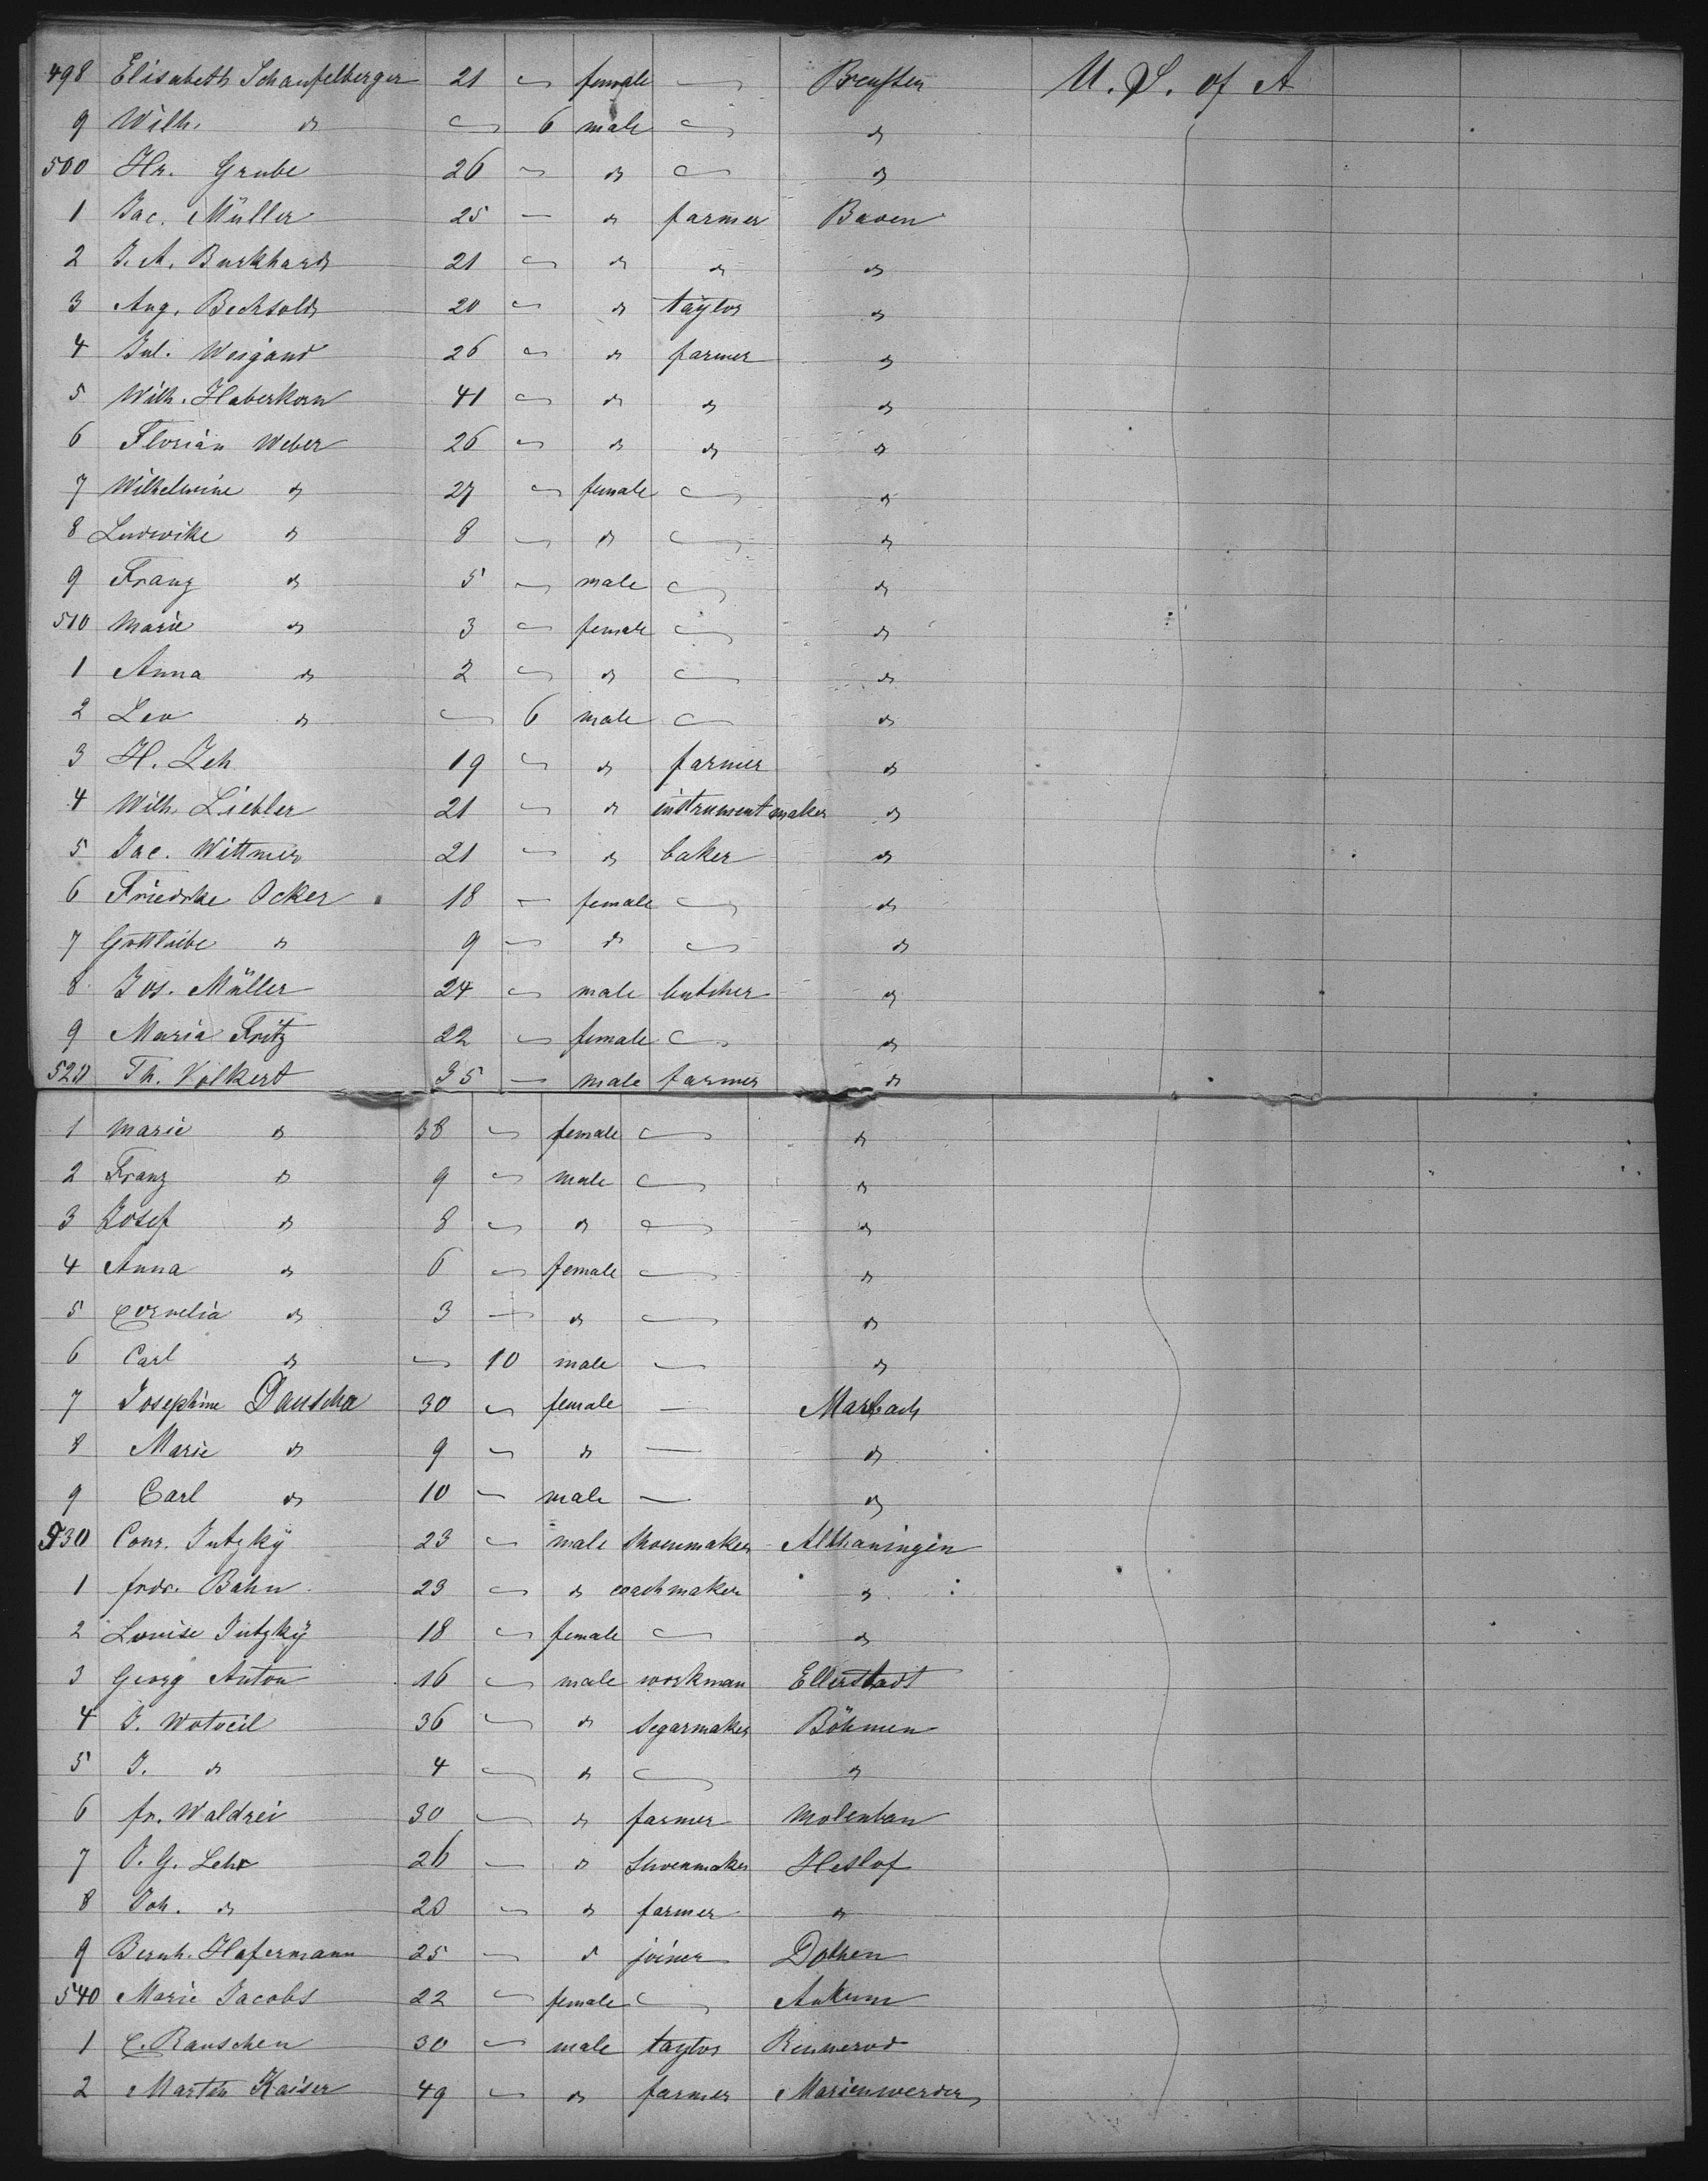 498 Elisabeth Schaufelberger 21 — female — Preußen U. S. of A
9 Wilh. do — 6 male — do
500 Hr. Grube 26 — do — do
1 Jac. Müller 25 — do farmer Baden
2 J. A. Burkhard 21 — do do do
3 Aug. Bechtold 20 — do taylor do
4 Jul. Weigand 26 — do farmer do
5 Wilh. Haberkorn 41 — do do do
6 Florian Weber 26 — do do do
7 Wilhelmine do 27 — female — do
8 Ludwike do 8 — do — do
9 Franz do 5 — male — do
510 Marie do 3 — female — do
1 Anna do 2 — do — do
2 Leo do — 6 male — do
3 H. Zeh 19 — do farmer do
4 Wilh. Liebler 21 — do instrument maker do
5 Jac. Wittmer 21 — do baker do
6 Friedrke Ocker 18 — female — do
7 Gottliebe do 9 — do — do
8 Jos. Müller 24 — male butcher do
9 Maria Fritz 22 — female — do
520 Th. Volkert 35 — male farmer do
1 Marie do 38 — female — do
2 Franz do 9 — male — do
3 Josef do 8 — do — do
4 Anna do 6 — female — do
5 Cornelia do 3 — do — do
6 Carl do — 10 male — do
7 Josephine Dauscha 30 — female — Marbach
8 Marie do 9 — do — do
9 Carl do 10 — male — do
530 Conr. Jutzky 23 — male shoemaker Althaningen
1 frdr. Bähn 23 — do coachmaker do
2 Louise Jutzky 18 — female — do
3 Georg Anton 16 — male workman Ellerstadt
4 J. Wotveil 36 — do segarmaker Böhmen
5 J. do 4 — do — do
6 fr. Waldrei 30 — do farmer
7 J. G. Lehr 26 — do Heslof
8 Joh. do 20 — do farmer do
9 Bernh. Hafermann 25 — do joiner Dohren
540 Marie Jacobs 22 — female — Ankum
1 C. Rauschen 30 — male taylor Rennerod
2 Martin Kaiser 49 — do farmer Marienwerder